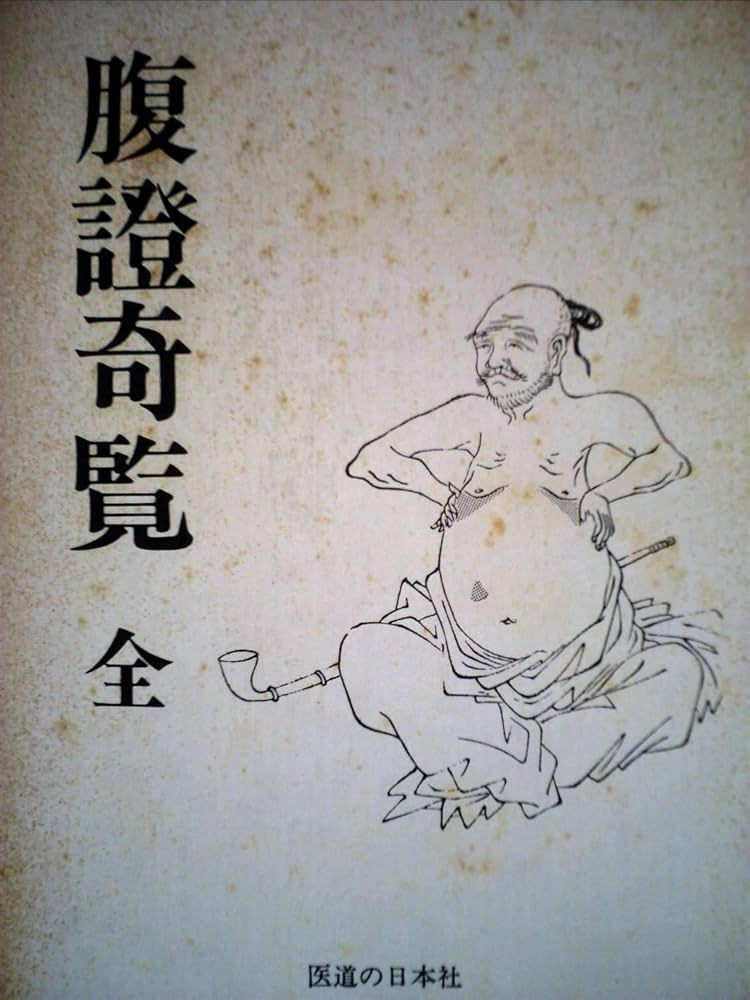 腹證奇覧 全
医道の日本社